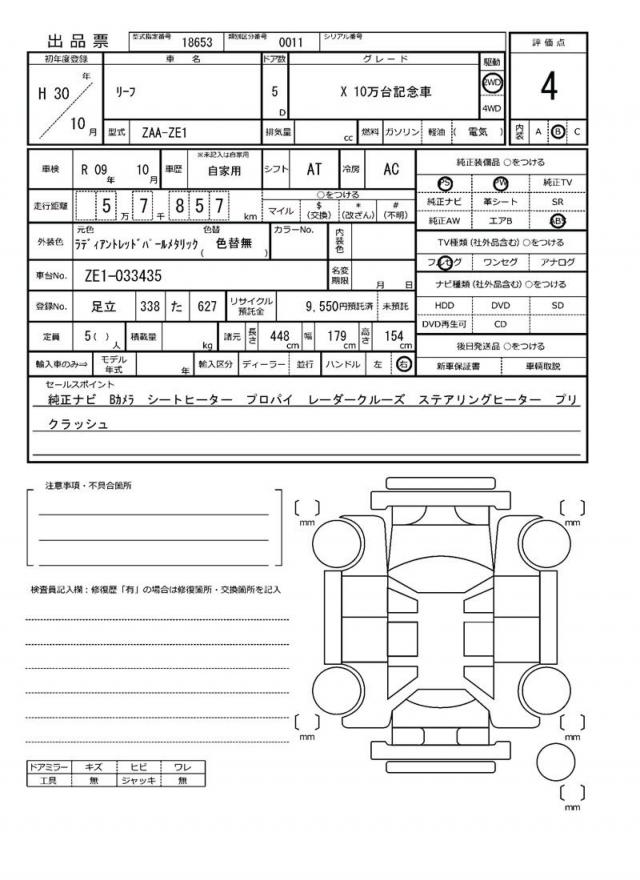 出品票 型式指定番号 18653 類別区分番号 0011 シリアル番号
評価点
4
初年度登録 車名 ドア数 グレード 駆動
H 30 年 10 月
リーフ
5 D
X 10万台記念車
2WD
4WD
型式 ZAA-ZE1 排気量 cc 燃料 ガソリン 軽油 ( 電気 )
内装 A B C
車検 R 09 年 10 月 車歴 ※未記入は自家用 自家用 シフト AT 冷房 AC
純正装備品 ○をつける
PS PW 純正TV
走行距離 5 万 7 千 8 5 7 km
○をつける
マイル $ (交換) * (改ざん) # (不明)
純正ナビ 革シート SR
純正AW エアB ABS
外装色 元色 ラディアントレッドパールメタリック 色替 ( 色替無 ) カラーNo. 内装色
TV種類(社外品含む) ○をつける
フルセグ ワンセグ アナログ
車台No. ZE1-033435 名変期限 月 日
ナビ種類(社外品含む)○をつける
登録No. 足立 338 た 627 リサイクル預託金 9,550円預託済 未預託
HDD DVD SD
DVD再生可 CD
定員 5( ) 人 積載量 kg 諸元 長さ 448 cm 幅 179 cm 高さ 154 cm
後日発送品 ○をつける
輸入車のみ⇒ モデル年式 年 輸入区分 ディーラー 並行 ハンドル 左 右
新車保証書 車輌取説
セールスポイント
純正ナビ Bカメラ シートヒーター プロパイ レーダークルーズ ステアリングヒーター プリ
クラッシュ
注意事項・不具合箇所
mm
mm
検査員記入欄:修復歴「有」の場合は修復箇所・交換箇所を記入
mm
mm
ドアミラー キズ ヒビ ワレ
工具 無 ジャッキ 無
mm